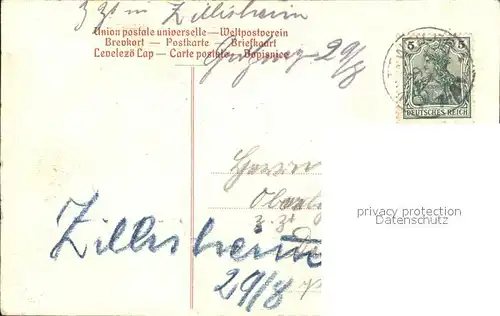 z. Zt in Zillisheim
Union postale universelle — Weltpostverein
Brevkort — Postkarte — Briefkaart
Levelező Lap — Carte postale — Dopisnice
29/8
5 5
DEUTSCHES REICH
Herrn
z. Zt
privacy protection
Datenschutz
Zillisheim
29/8